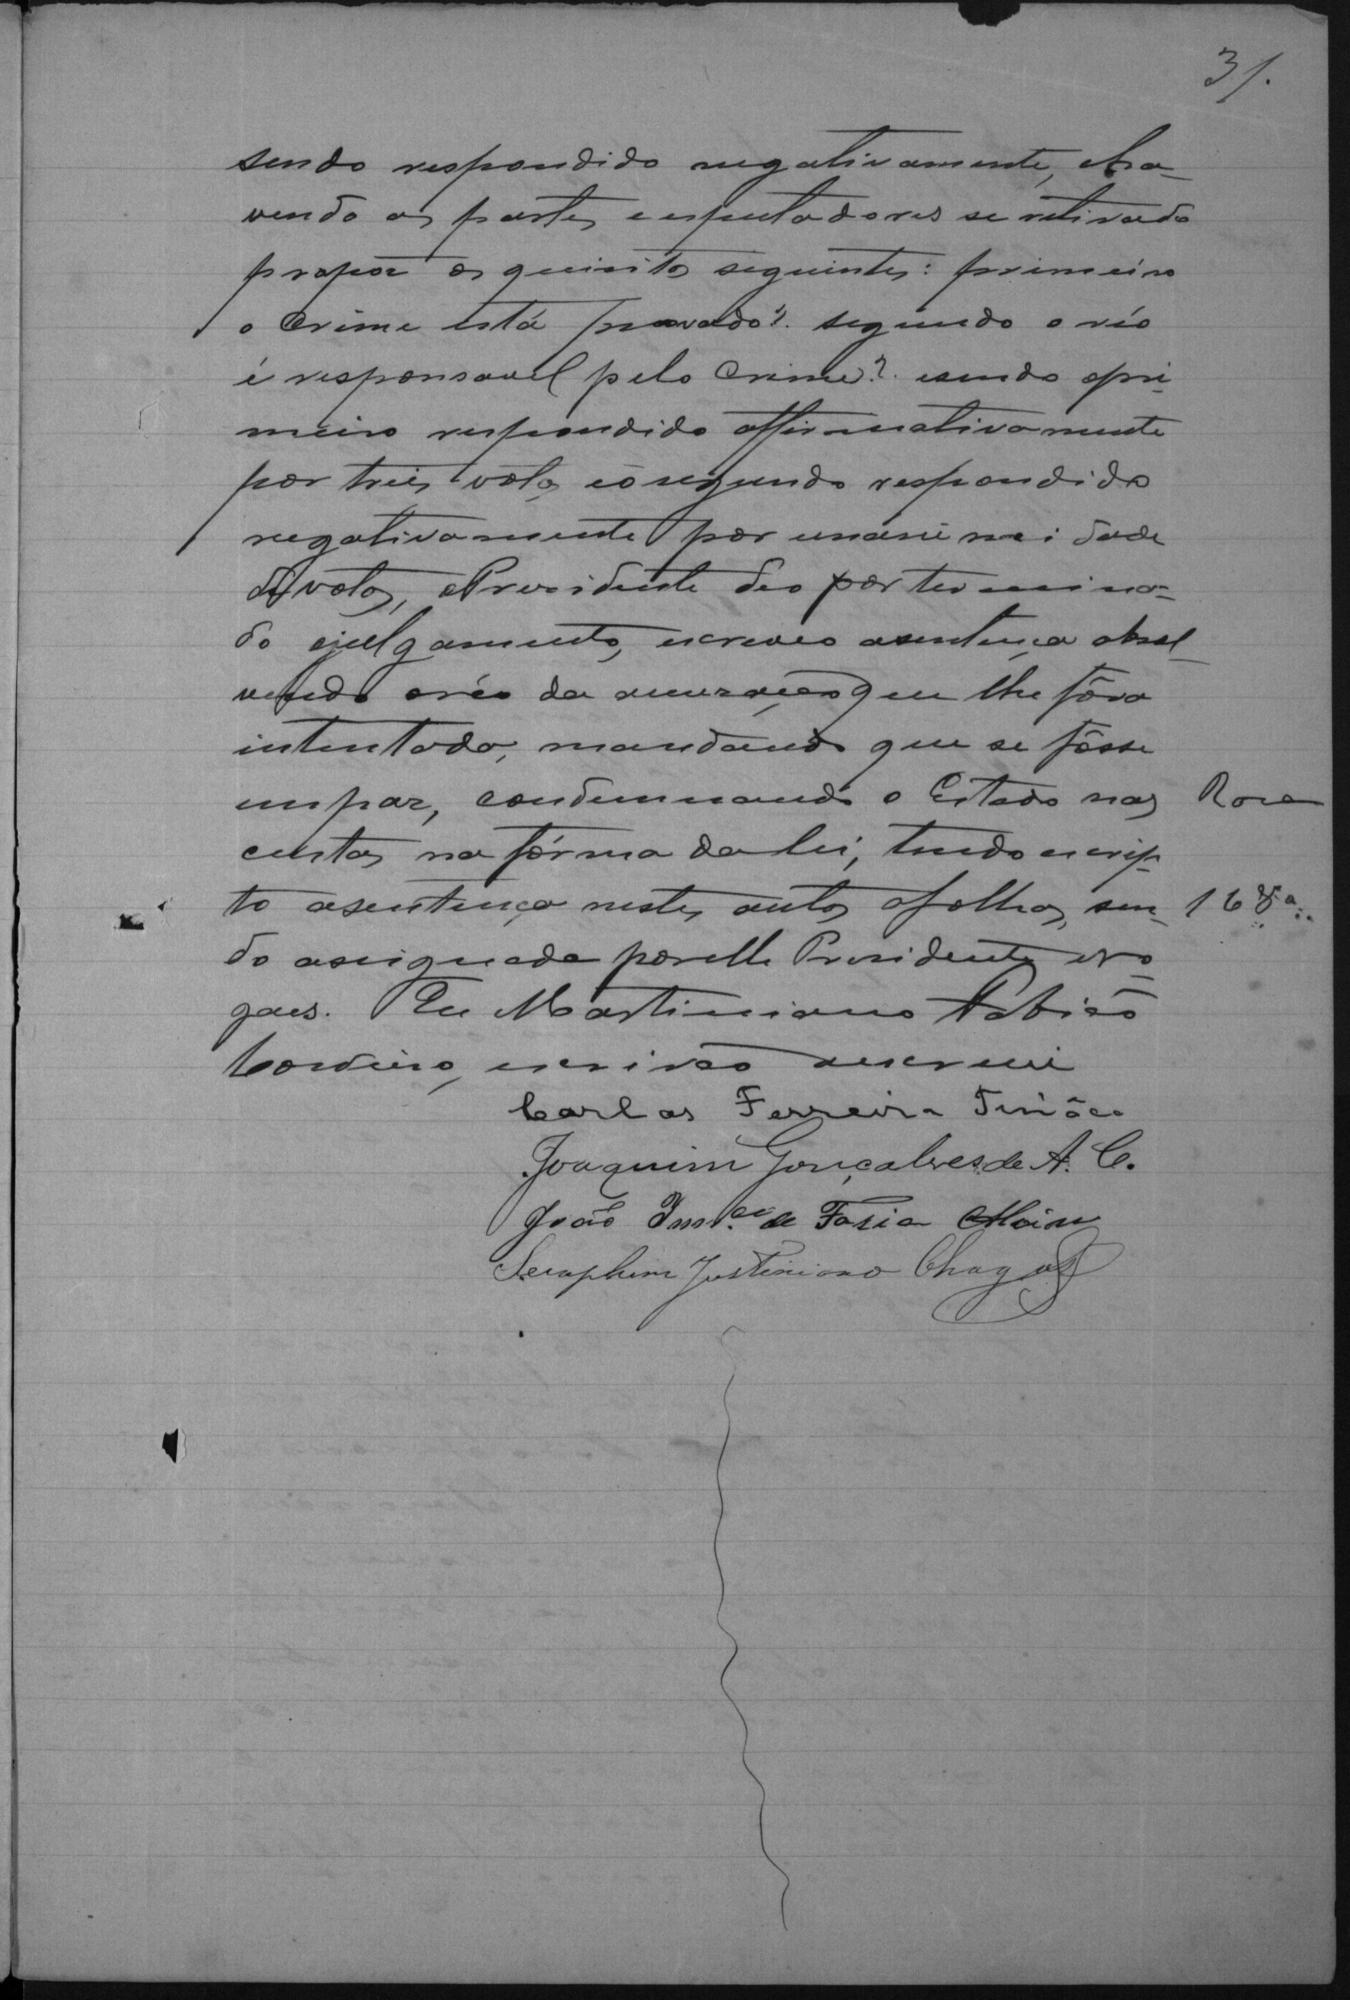 31.
sendo respondido negativamente, e ha-
vendo as partes e espectadores se retirado
propoz os quisitos seguintes: primeiro
o Crime está provado? segundo o réo
é responsavel pelo Crime? e sendo o pri-
meiro respondido affirmativamente
por tres votos e o segundo respondido
negativamente por unanimidade
de votos, o Presidente deo por termina-
do o julgamento, escreveo a sentença absol-
vendo o réo da accusação que lhe fôra
intentada, mandando que se fôsse
em paz, condemnando o Estado nas
custas na fórma da lei, tendo escrip-
to a sentença nestes autos a folhas, sen- 16
do assignada por elle Presidente e vo-
gaes. Eu Martiniano Fabião
Cordeiro, escrivão o escrevi
Carlos Ferreira Tinôco
Joaquim Gonçalves de A. C.
João de Faria
Seraphim Justiniano Chagas